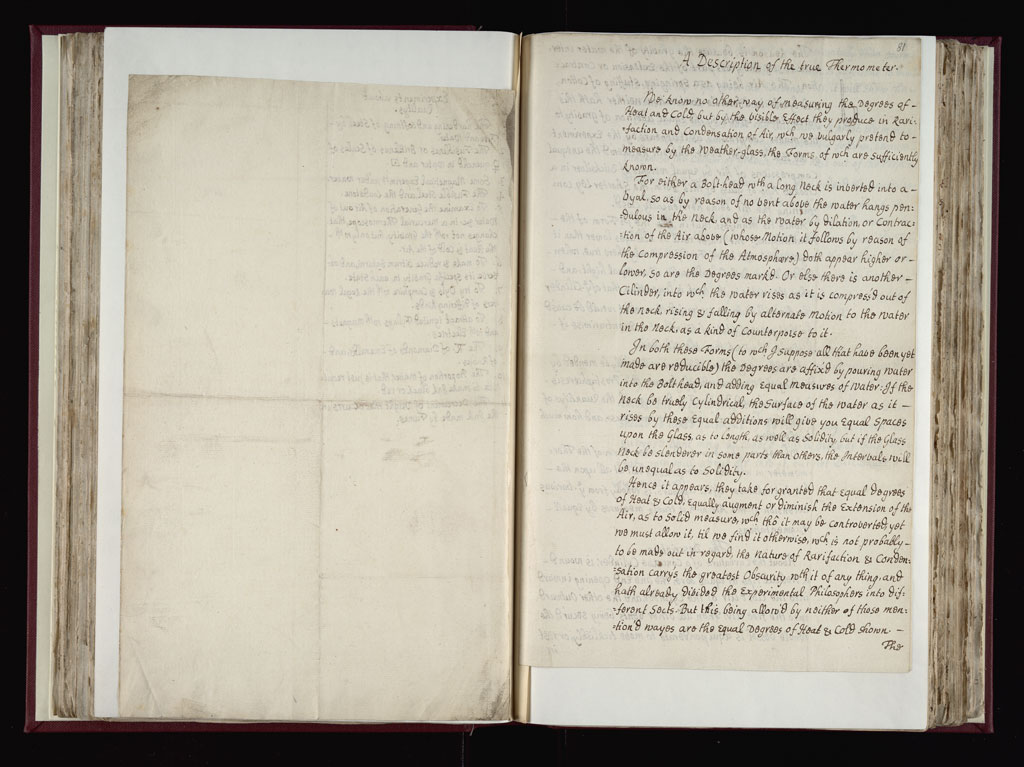 81
A Description of the true Thermometer.
We know no other way of measuring the Degrees of -
Heat and Cold, but by the visible Effect they produce in Rari-
-faction and Condensation of Air, wch we vulgarly pretend to -
measure by the Weather-glass, the Forms of wch are sufficiently
known.
For either a Bolt-head wth a long Neck is inverted into a -
Vyal, so as by reason of no vent above the water hangs pen-
-dulous in the Neck and as the water by dilation or Contrac-
-tion of the Air above (whose Motion it follows by reason of
the Compression of the Atmosphære) doth appear higher or -
lower, so are the Degrees markd. Or else there is another -
Cilinder, into wch the water rises as it is compress'd out of
the neck, rising & falling by alternate Motion to the water
in the Neck, as a kind of Counterpoise to it.
In both these Forms (to wch I suppose all that have been yet
made are reducible) the Degrees are affix'd by pouring water
into the Bolthead, and adding Equal measures of water: If the
Neck be truely Cylindrical, the Surface of the water as it -
rises by these Equal additions will give you Equal Spaces
upon the Glass, as to Length, as well as Solidity, but if the Glass
Neck be slenderer in some parts than others, the Intervals will
be unequal as to Solidity.
Hence it appears, they take for granted that Equal degrees
of Heat & Cold, Equally augment or diminish the Extension of the
Air, as to Solid measure, wch tho it may be Controverted, yet
we must allow it, til we find it otherwise, wch is not probably -
to be made out in regard, the Nature of Rarifaction & Conden-
-sation carry's the greatest Obscurity wth it of any thing, and
hath already Divided the Experimental Philosophers into dif-
-ferent Sects. But this being allow'd by neither of those men-
-tion'd wayes are the Equal Degrees of Heat & Cold shown. -
The